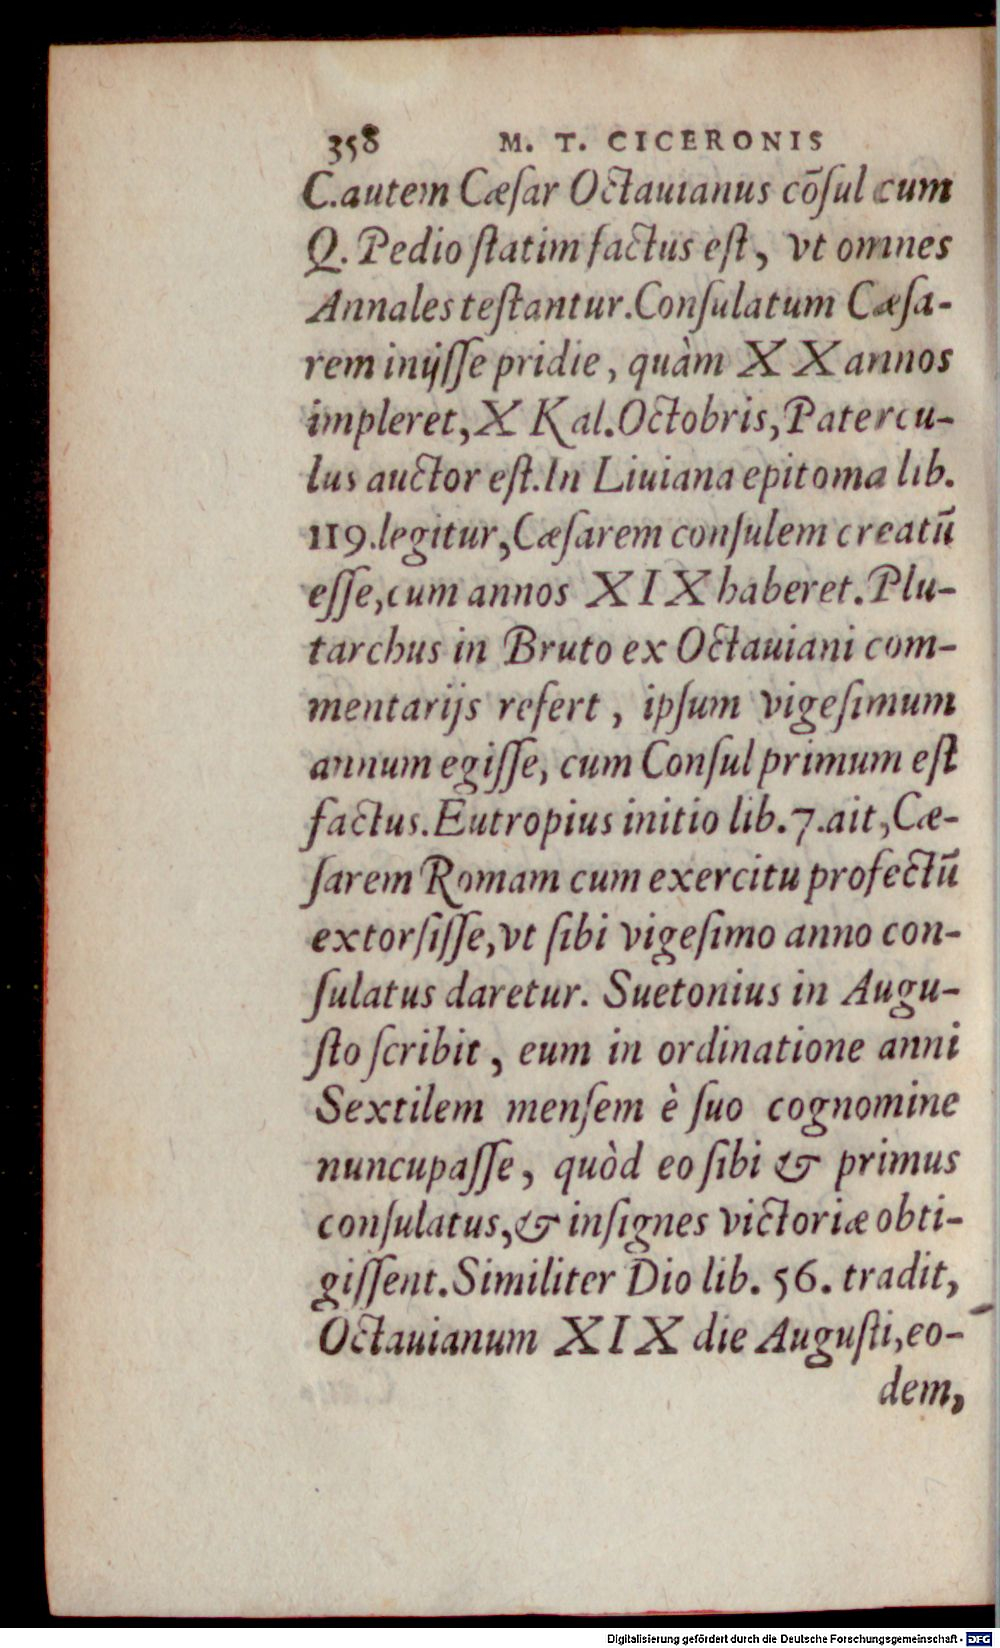 358 M. T. CICERONIS
C.autem Cæſar Octauianus cõſul cum
Q. Pedio ſtatim factus eſt, vt omnes
Annales teſtantur.Conſulatum Cæſa-
rem inijſſe pridie, quàm XX annos
impleret,X Kal.Octobris,Patercu-
lus auctor eſt.In Liuiana epitoma lib.
119.legitur,Cæſarem conſulem creatũ
eſſe,cum annos XIX haberet.Plu-
tarchus in Bruto ex Octauiani com-
mentarijs refert, ipſum vigeſimum
annum egiſſe, cum Conſul primum eſt
factus.Eutropius initio lib.7.ait,Cæ-
ſarem Romam cum exercitu profectũ
extorſiſſe,vt ſibi vigeſimo anno con-
ſulatus daretur. Suetonius in Augu-
ſto ſcribit, eum in ordinatione anni
Sextilem menſem è ſuo cognomine
nuncupaſſe, quòd eo ſibi & primus
conſulatus,& inſignes victoriæ obti-
giſſent.Similiter Dio lib. 56. tradit,
Octauianum XIX die Auguſti,eo-
dem,
Digitalisierung gefördert durch die Deutsche Forschungsgemeinschaft - DFG